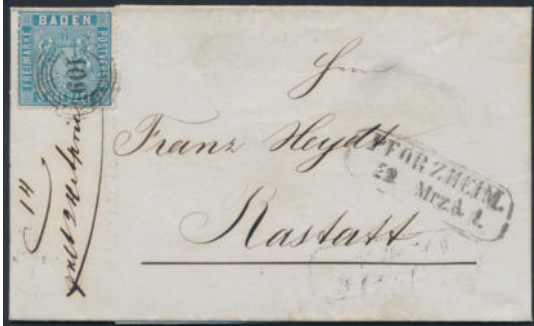 BADEN
FREIMARKE
POSTVEREIN
109
Hrn
Franz Heydt
PFORZHEIM.
22 Mrz. A. 1.
Rastatt
14